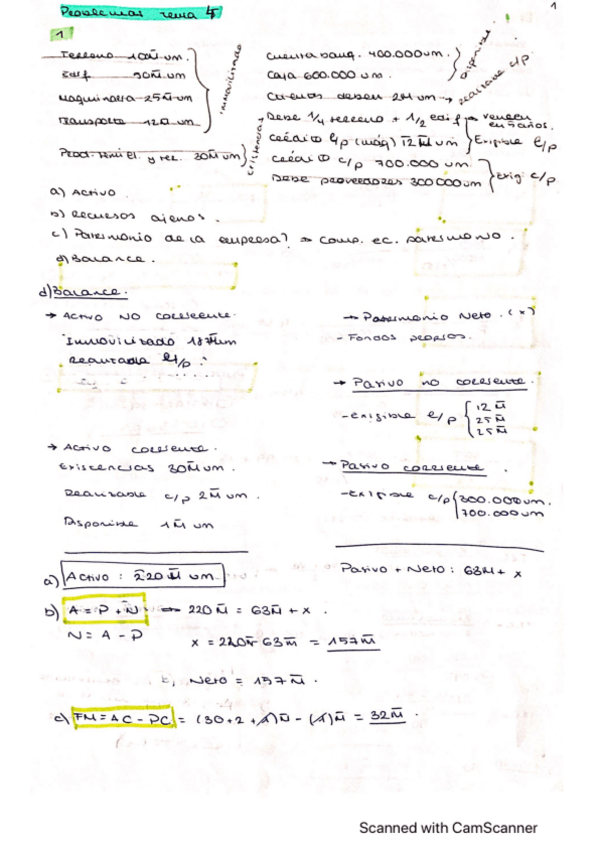 Problemas tema 4
1
1
Terreno 100M̄ um.
Edif 50M̄ um
Maquinaria 25M̄ um
Transporte 12M̄ um.
inmovilizado
Prod. semiel. y ter. 30M̄ um
existencias
Cuenta banq. 400.000 um.
Caja 600.000 um.
disponible
Clientes deben 2M̄ um → realizable c/p
Debe 1/4 terreno + 1/2 edif → vencen en 5 años.
Crédito l/p (máq) 12M̄ um
Exigible l/p
Crédito c/p 700.000 um.
Debe proveedores 300.000 um
Exig. c/p
a) Activo
b) Recursos ajenos.
c) Patrimonio de la empresa? → Comp. ec. patrimonio.
d) Balance.
d) Balance.
→ Activo no corriente.
Inmovilizado 187M̄um
Realizable l/p :
→ Patrimonio Neto. (x)
- Fondos propios.
→ Pasivo no corriente.
- exigible l/p
12M̄
25M̄
25M̄
→ Activo corriente.
Existencias 30M̄ um.
Realizable c/p 2M̄ um.
Disponible 1M̄ um
→ Pasivo corriente.
- exigible c/p
300.000um.
700.000um
Pasivo + Neto: 63M̄ + x
a) Activo: 220M̄ um.
b) A = P + N → 220M̄ = 63M̄ + x.
N = A - P
x = 220M̄ - 63M̄ = 157M̄
Neto = 157M̄.
c) FM = AC - PC = (30+2+1)M̄ - (1)M̄ = 32M̄.
Scanned with CamScanner